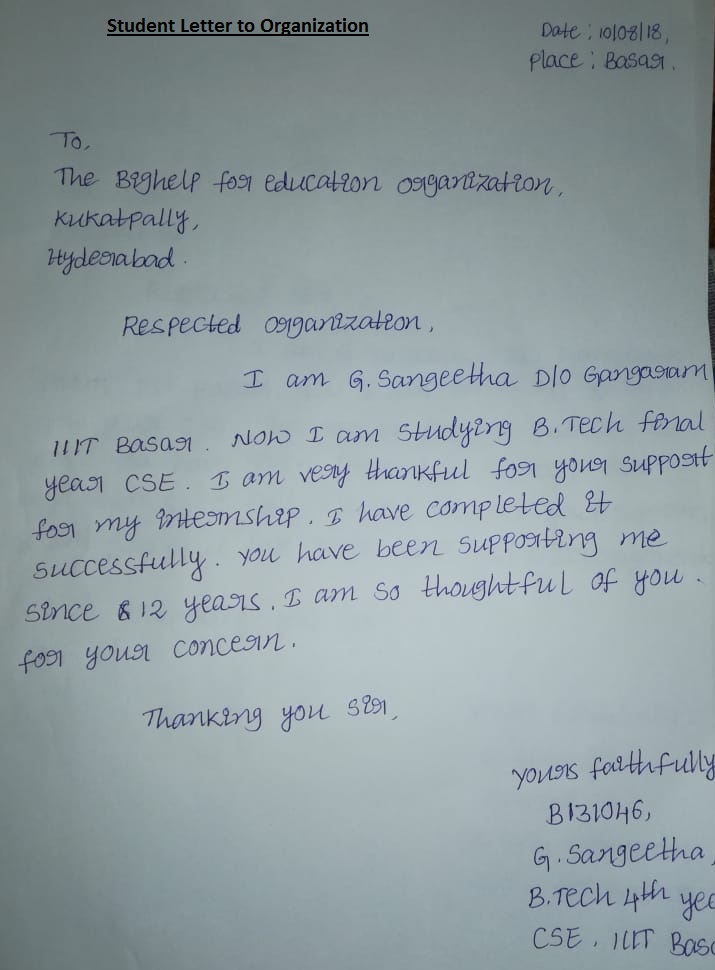 Student Letter to Organization
Date : 10/08/18,
Place : Basar.
To,
The Bighelp for education organization,
Kukatpally,
Hyderabad.
Respected organization,
I am G. Sangeetha D/o Gangaram
IIIT Basar. Now I am studying B.Tech final
year CSE. I am very thankful for your support
for my internship. I have completed it
successfully. you have been supporting me
since 12 years. I am so thoughtful of you.
for your concern.
Thanking you sir,
yours faithfully
B131046,
G. Sangeetha,
B.Tech 4th
CSE, IIIT